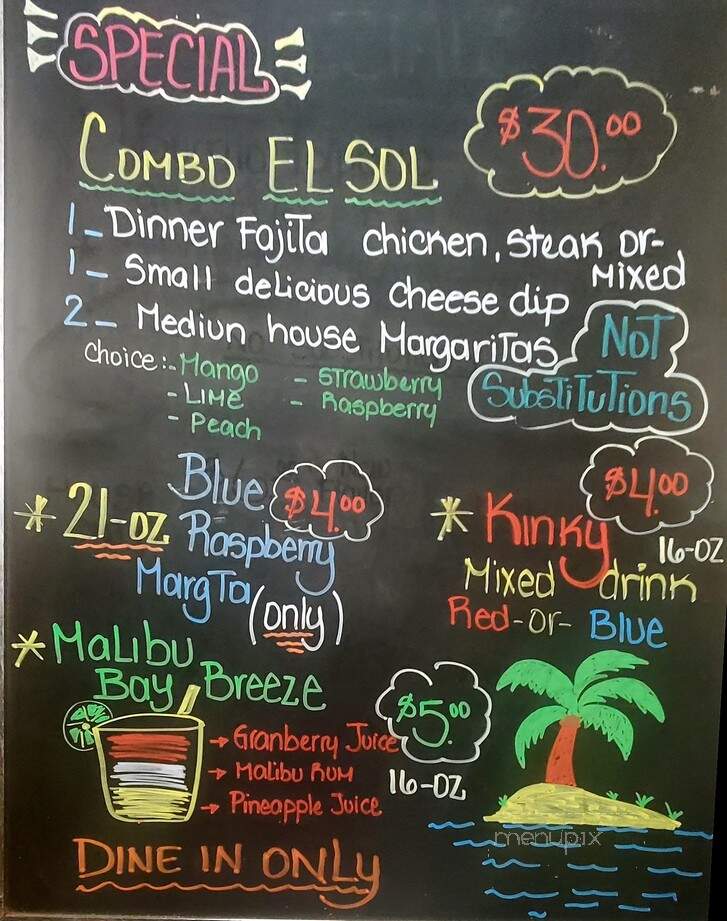 SPECIAL
$30.00
COMBO EL SOL
1- Dinner Fajita chicken, steak or-
Mixed
1- Small delicious cheese dip
2- Mediun house Margaritas
Not
Substitutions
Choice:- Mango
- Lime
- Peach
- Strawberry
- Raspberry
* 21-oz Blue
Raspberry
MargTa
(only)
$4.00
* Kinky
$4.00
16-OZ
Mixed drink
Red-or-Blue
* Malibu
Bay Breeze
$5.00
16-OZ
→ Granberry Juice
→ Malibu Rum
→ Pineapple Juice
menupix
DINE IN ONLY